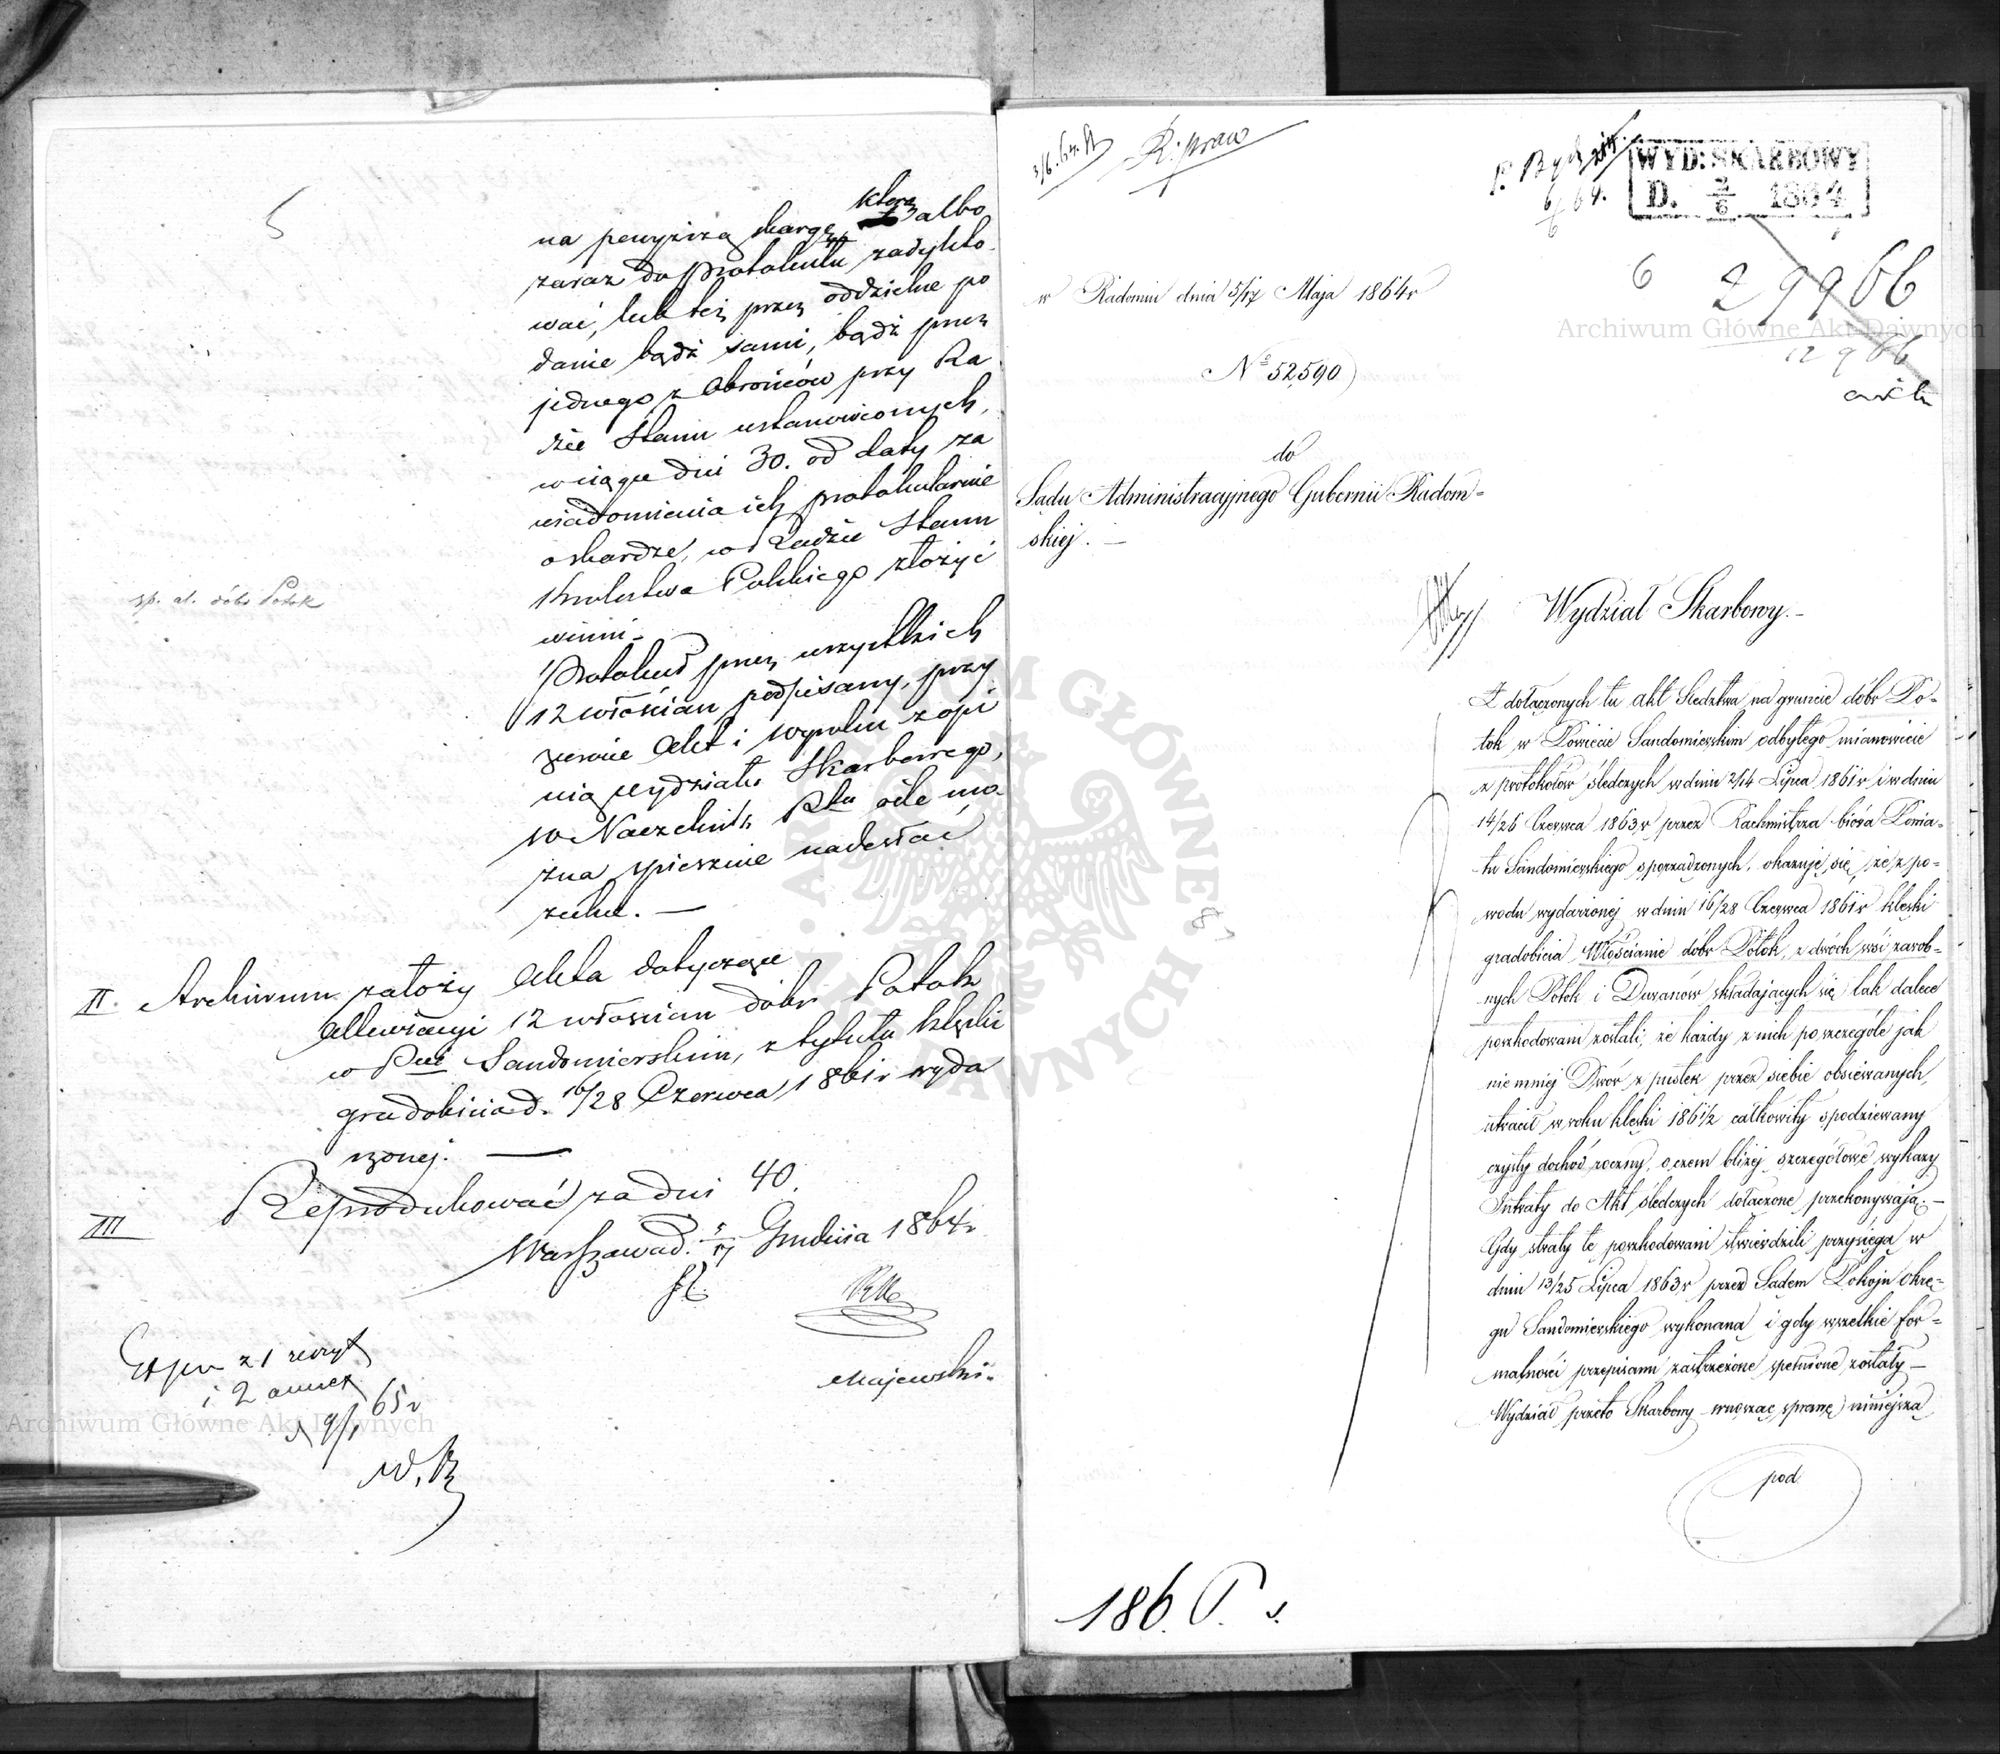 5
na powyższą skargę, którą albo
zaraz do protokułu zadykto
wać, lub też przez oddzielne po
danie bądź sami, bądź przez
jednego z Obrońców przy Ra
dzie Stanu ustanowionych,
w ciągu dni 30. od daty za
wiadomienia ich protokularnie
o skardze, w Radzie Stanu
Królestwa Polskiego złożyć
winni.
Protokuł przez wszystkich
12 włościan podpisany, przy
zwrocie Akt i wywodu z opi
nią Wydziału Skarbowego,
W Naczelnik Ptu o ile mo
żna spiesznie nadesłać
zechce. —
sp. al. dóbr Potok
II. Archiwum założy Akta dotyczące
Allewiacyi 12 włościan dóbr Potok
w Pcie Sandomierskim, z tytułu klęski
gradobicia d. 16/28 Czerwca 1861 r wyda
rzonej. —
III Reprodukować za dni 40.
Warszawa d. 5/17 Grudnia 1864 r
Majewski
z 1 reskryt
i 2 annex
d 9/1 65 r
3/6. 64.
R: praw
6/6 64.
WYD: SKARBOWY
D. 3/6 1864
6 29966
12966
w Radomiu dnia 5/17 Maja 1864 r
No 52,590
do
Sądu Administracyjnego Gubernii Radom=
skiej. —
Wydział Skarbowy.—
Z dołączonych tu akt Śledztwa na gruncie dóbr Po=
tok w Powiecie Sandomierskim odbytego mianowicie
z protokołów śledczych w dniu 2/14 Lipca 1861 r i w dniu
14/26 Czerwca 1863 r przez Rachmistrza biura Powia=
tu Sandomierskiego sporządzonych, okazuje się, że z po=
wodu wydarzonej w dniu 16/28 Czerwca 1861 r klęski
gradobicia Włościanie dóbr Potok, z dwóch wsi zarob=
nych Potok i Duranów składających się tak dalece
poszkodowani zostali, że każdy z nich po szczególe jak
nie mniej Dwór z pustek przez siebie obsiewanych,
utracił w roku klęski 1861/2 całkowity spodziewany
czysty dochód roczny, o czem bliżej szczegółowe wykazy
Intraty do Akt śledczych dołączone przekonywają.—
Gdy straty te poszkodowani stwierdzili przysięgą w
dniu 13/25 Lipca 1863 r przed Sądem Pokoju Okrę=
gu Sandomierskiego wykonaną i gdy wszelkie for=
malności przepisami zastrzeżone spełnione zostały —
Wydział przeto Skarbowy wnosząc sprawę niniejszą
pod
8
186. P. s.
ARCHIWUM GŁÓWNE AKT DAWNYCH
Archiwum Główne Akt Dawnych
Archiwum Główne Akt Dawnych